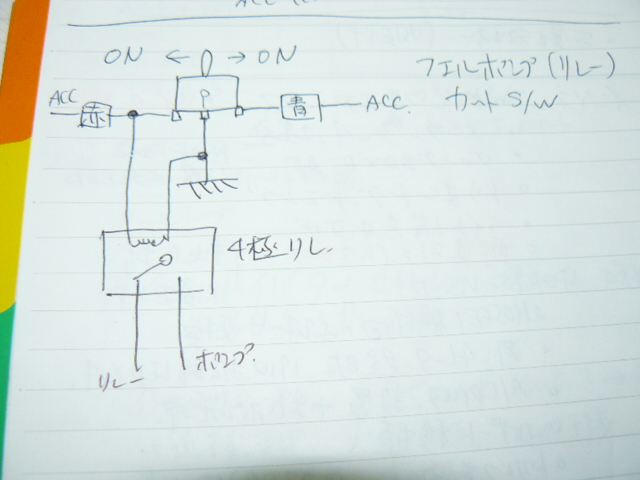 ACC
ON ← → ON
フエルポンプ(リレー)
カットS/W
ACC 赤 P 青 ACC.
4極リレー
リレー ポンプ